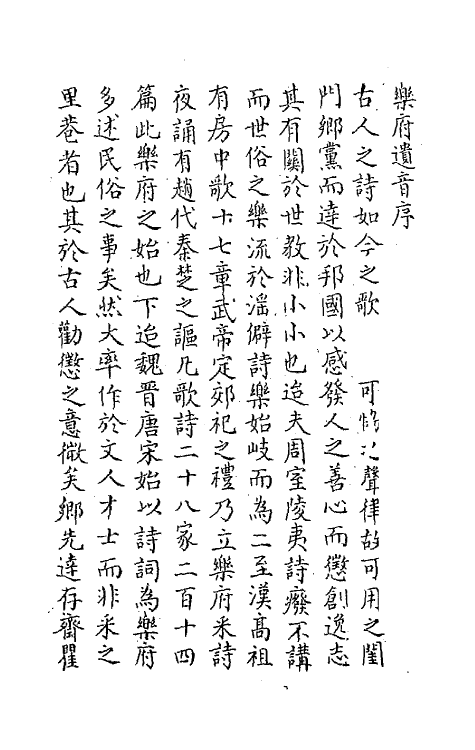 樂府遺音序
古人之詩如今之歌　　可　　聲律故可用之閨
門鄉黨而達於邦國以感發人之善心而懲創逸志
其有關於世教非小小也迨夫周室陵夷詩廢不講
而世俗之樂流於滛僻詩樂始岐而為二至漢髙祖
有房中歌十七章武帝定郊祀之禮乃立樂府采詩
夜誦有趙代秦楚之謳凡歌詩二十八家二百十四
篇此樂府之始也下迨魏晋唐宋始以詩詞為樂府
多述民俗之事矣然大率作於文人才士而非采之
里巷者也其於古人勸懲之意微矣鄉先達存齋瞿